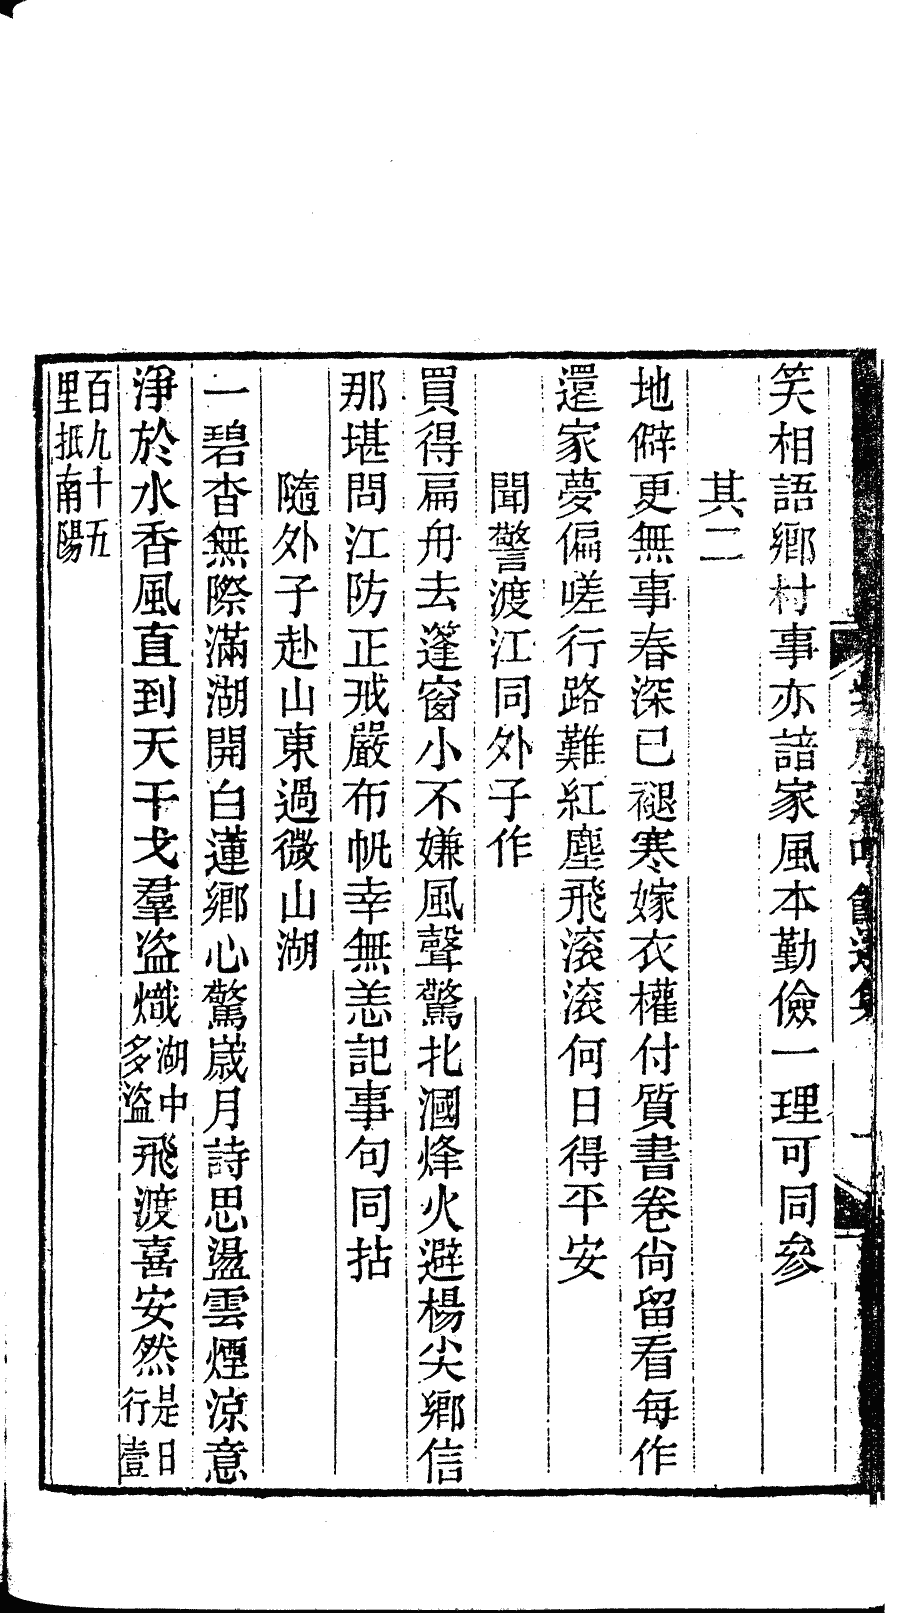 笑相語鄉村事亦諳家風本勤儉一理可同參
其二
地僻更無事春深已褪寒嫁衣權付質書卷尙留看每作
還家夢偏嗟行路難紅塵飛滾滾何日得平安
聞警渡江同外子作
買得扁舟去篷窗小不嫌風聲驚北漍烽火避楊尖鄉信
那堪問江防正戒嚴布帆幸無恙記事句同拈
隨外子赴山東過微山湖
一碧杳無際滿湖開白蓮鄉心驚歲月詩思盪雲煙涼意
淨於水香風直到天干戈羣盜熾湖中多盜飛渡喜安然是日行壹
百九十五里抵南陽